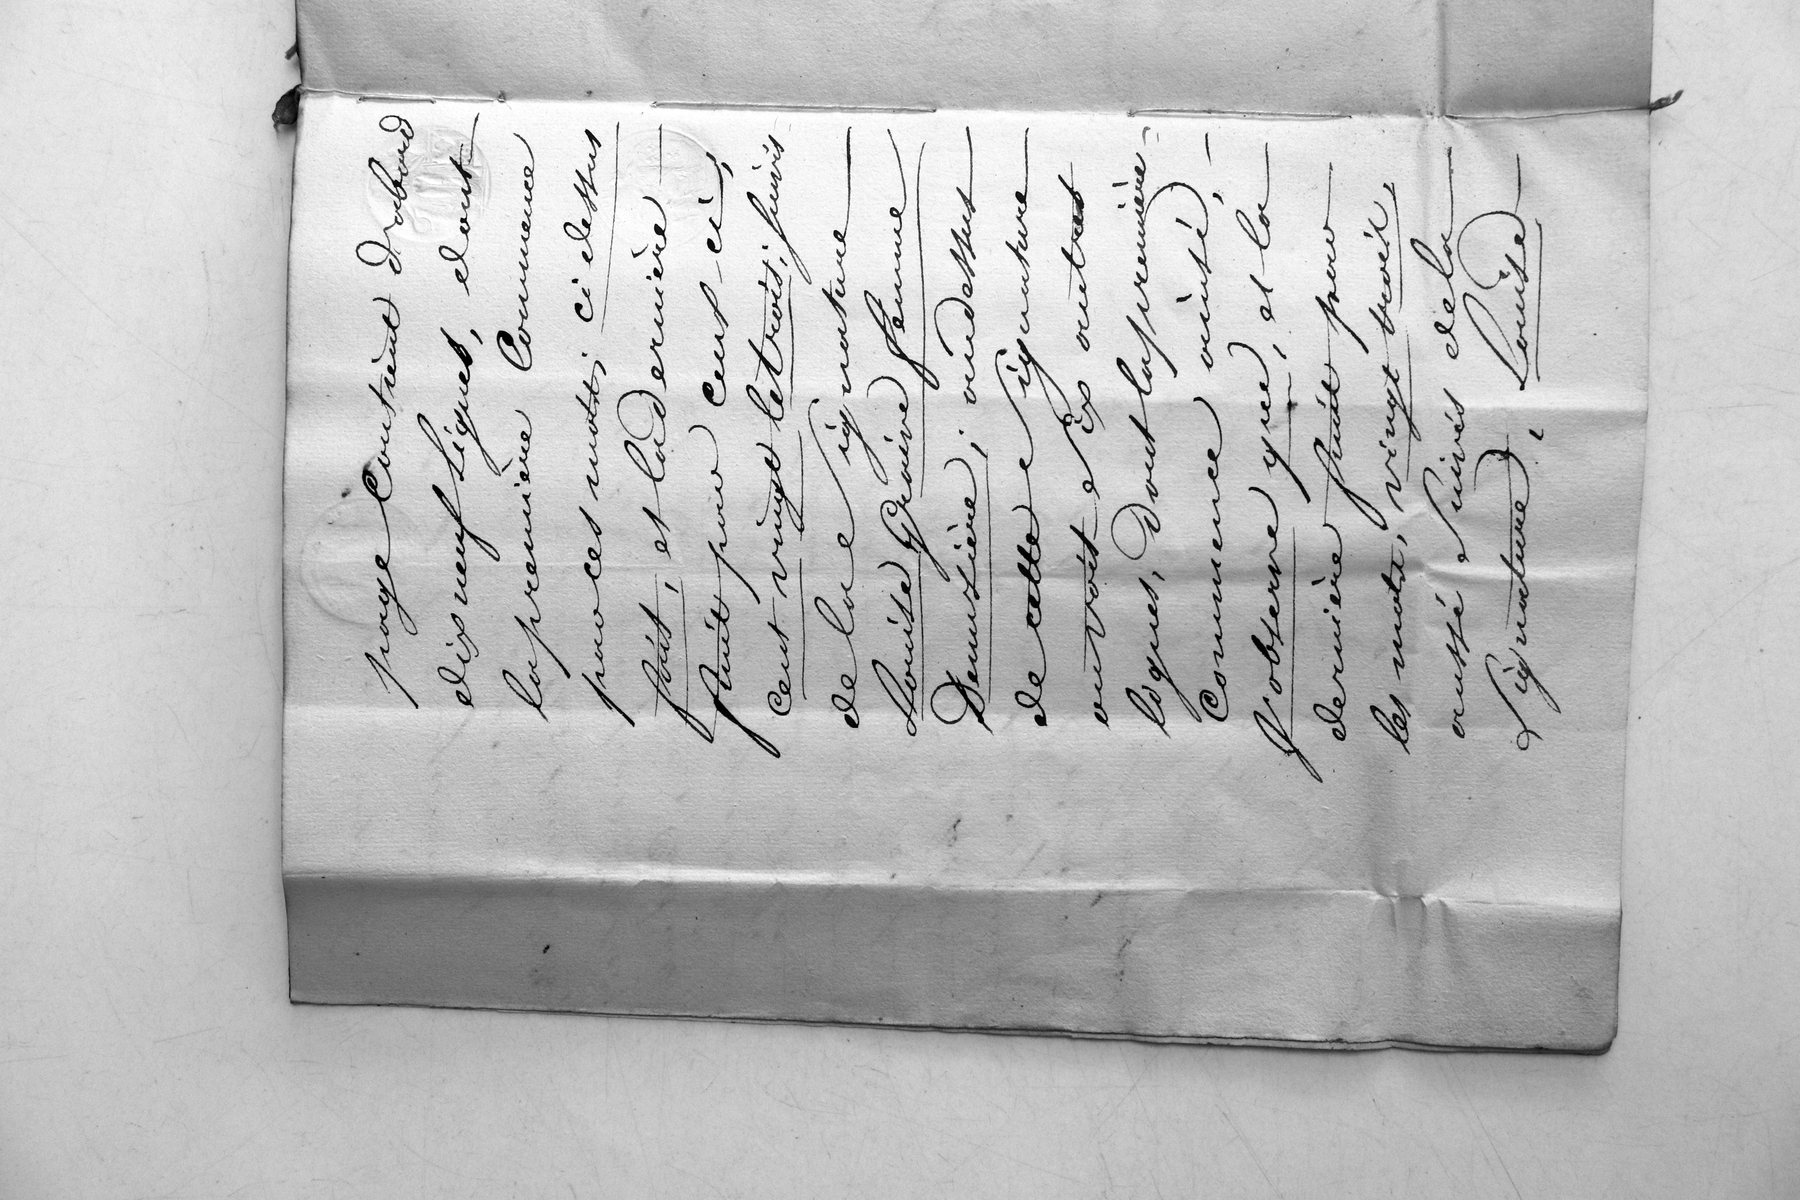 page Contient d'abord
dix neuf Lignes, dont
la première Commence
par ces mots; ci dessus
fait, et la dernière
finit par cent-ci,
cent vingt et trois; suivis
de la Signature
Louise femme
; au dessus
de cette Signature
on voit Six autres
lignes, Dont la première
Commence ainsi,
J'observe que, et la
dernière finit par
les mots, vingt trois,
aussi Suivis de la
Signature, Louise